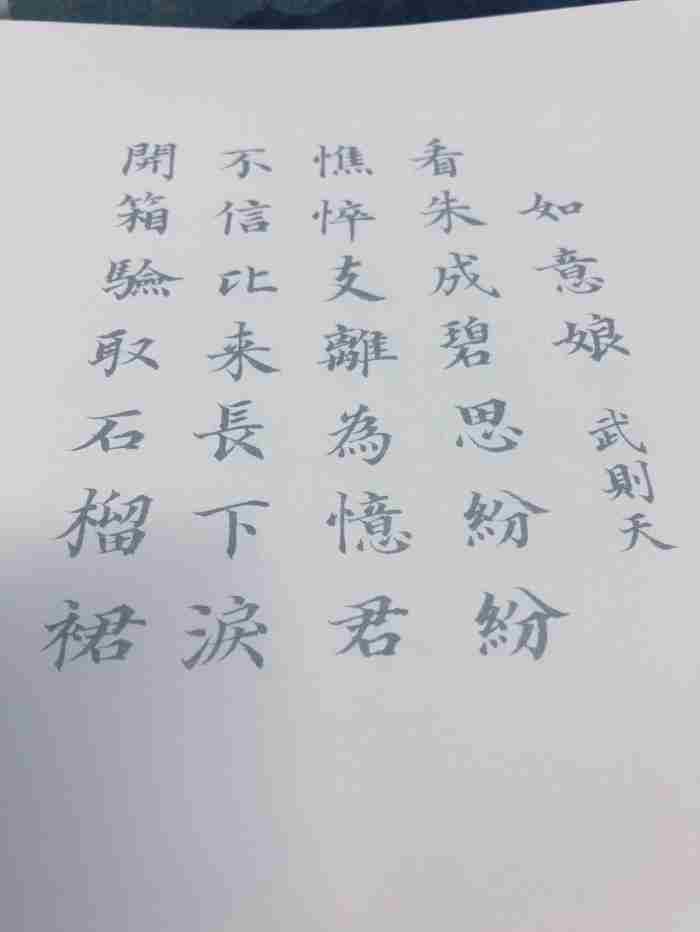 如意娘
武則天
看朱成碧思紛紛
憔悴支離為憶君
不信比来長下淚
開箱驗取石榴裙